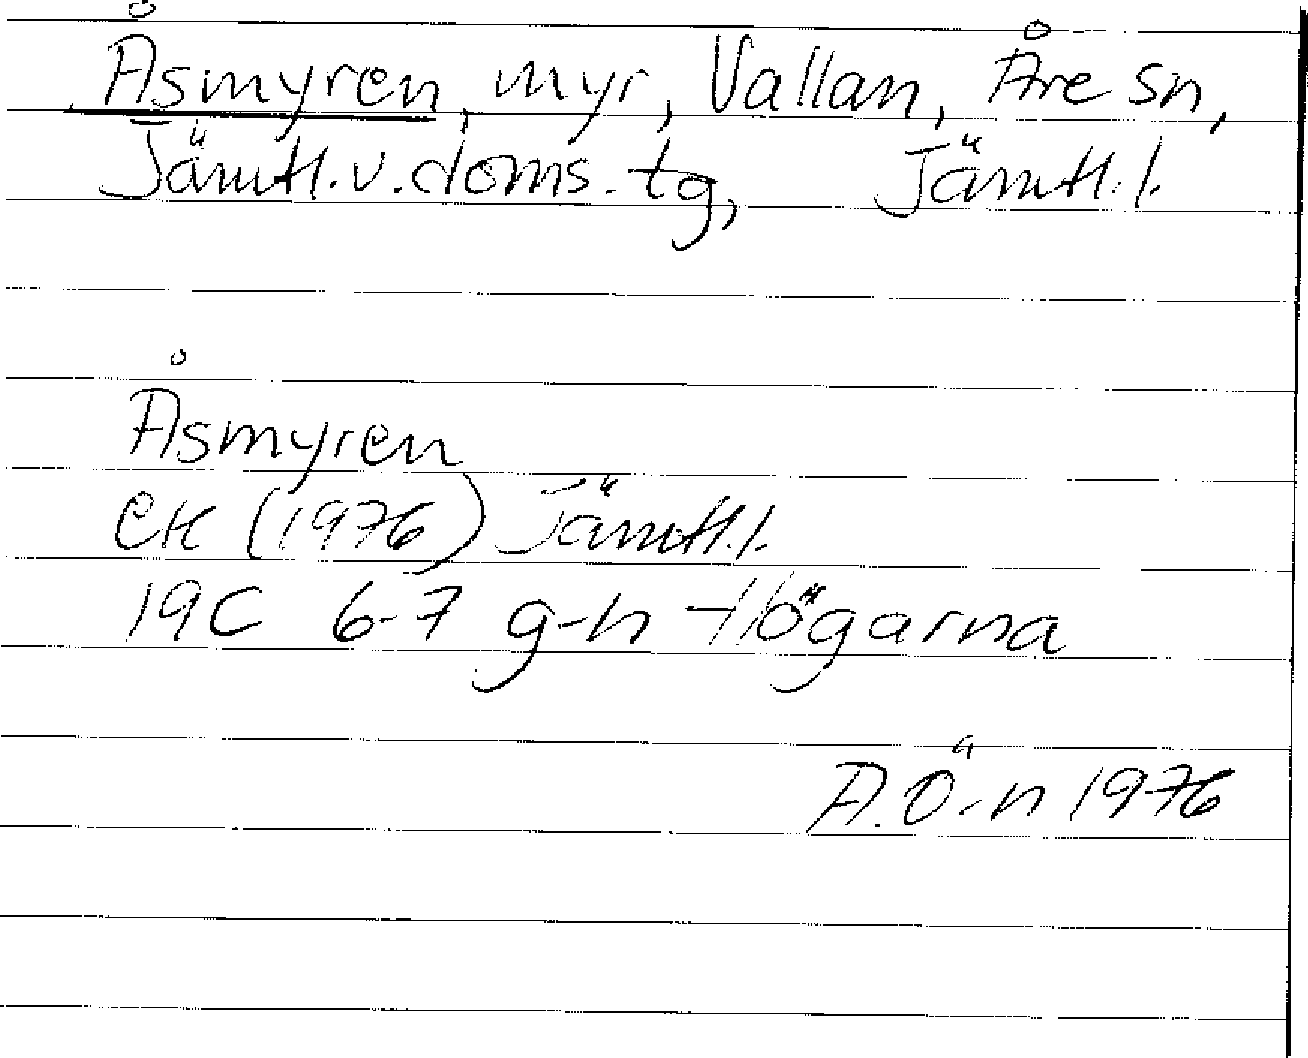 Åsmyren, myr, Vallan, Åre sn,
Jämtl. v. doms. tg, Jämtl. l.
Åsmyren
EK (1976) Jämtl. l.
19C 6-7 g-h Högarna
A. Ö-n 1976